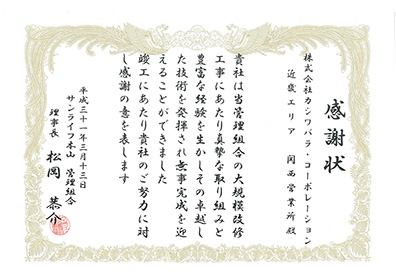 感謝状
株式会社カシワバラ・コーポレーション
近畿エリア 関西営業所殿
貴社は当管理組合の大規模改修
工事にあたり真摯な取り組みと
豊富な経験を生かしその卓越し
た技術を発揮され無事完成を迎
えることができました
竣工にあたり貴社のご努力に対
し感謝の意を表します
平成三十一年三月十三日
サンライフ本山 管理組合
理事長 松岡 恭介